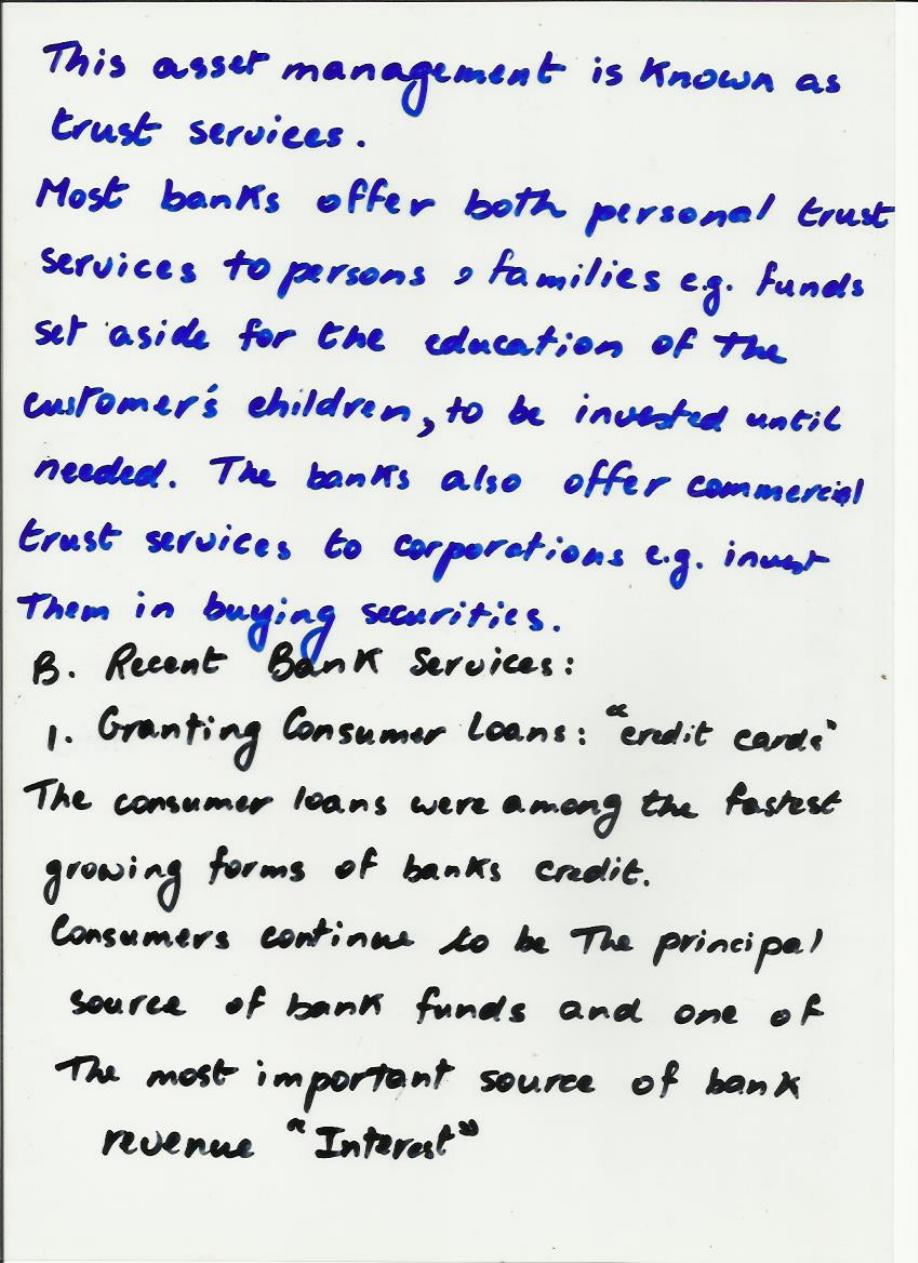 This asset management is known as
trust services.
Most banks offer both personal trust
services to persons, families e.g. funds
set aside for the education of the
customer's children, to be invested until
needed. The banks also offer commercial
trust services to corporations e.g. invest
Them in buying securities.
B. Recent Bank Services:
1. Granting Consumer Loans: "credit cards"
The consumer loans were among the fastest
growing forms of banks credit.
Consumers continue to be The principal
source of bank funds and one of
The most important source of bank
revenue "Interest"